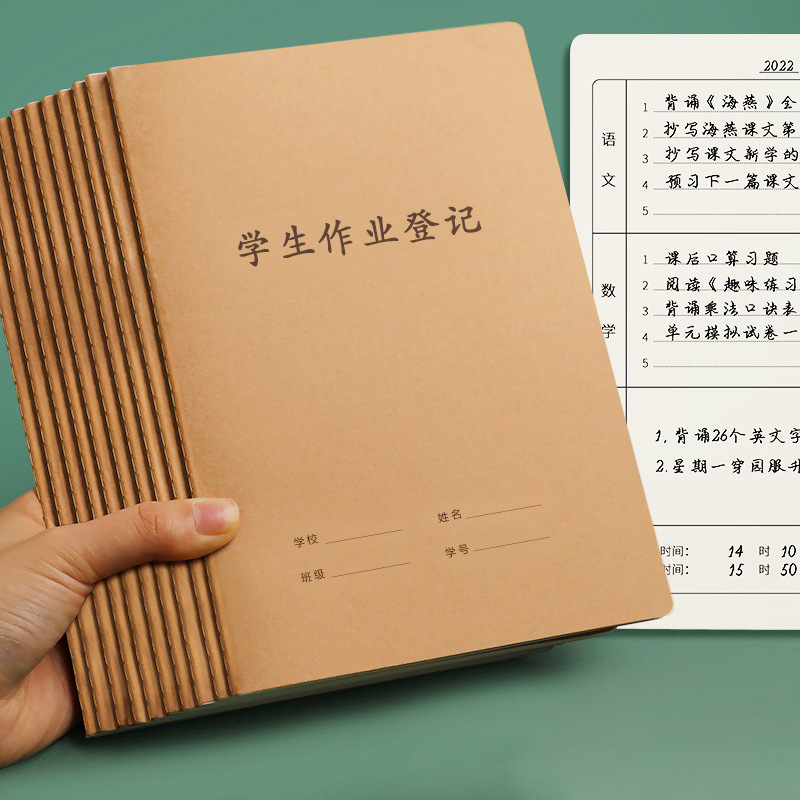 学生作业登记
学校
姓名
班级
学号
2022
语文
1 背诵《海燕》全
2 抄写海燕课文第
3 抄写课文新学的
4 预习下一篇课文
5
数学
1 课后口算习题
2 阅读《趣味练习
3 背诵乘法口诀表
4 单元模拟试卷一
5
1, 背诵26个英文字
2.星期一穿园服升
时间: 14 时 10
时间: 15 时 50